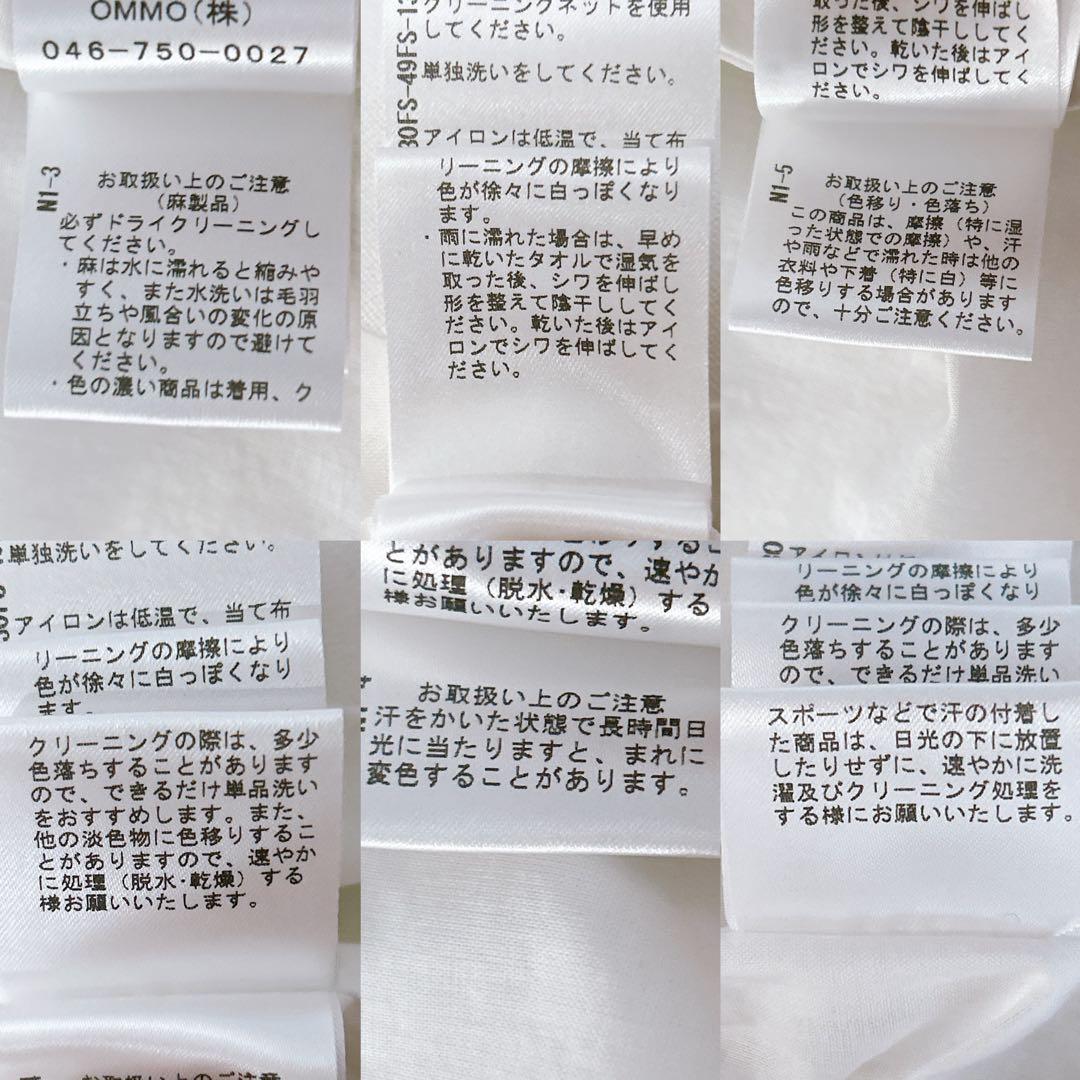 OMMO(株)
046-750-0027
N1-3
お取扱い上のご注意
(麻製品)
必ずドライクリーニングし
てください。
・麻は水に濡れると縮みや
すく、また水洗いは毛羽
立ちや風合いの変化の原
因となりますので避けて
ください。
・色の濃い商品は着用、ク
クリーニングネットを使用
してください。
単独洗いをしてください。
アイロンは低温で、当て布
リーニングの摩擦により
色が徐々に白っぽくなり
ます。
・雨に濡れた場合は、早め
に乾いたタオルで湿気を
取った後、シワを伸ばし
形を整えて陰干ししてく
ださい。乾いた後はアイ
ロンでシワを伸ばしてく
ださい。
取った後、シワを伸ばし
形を整えて陰干ししてく
ださい。乾いた後はアイ
ロンでシワを伸ばしてく
ださい。
N1-5
お取扱い上のご注意
(色移り・色落ち)
この商品は、摩擦(特に湿
った状態での摩擦)や、汗
や雨などで濡れた時は他の
衣料や下着(特に白)等に
色移りする場合があります
ので、十分ご注意ください。
単独洗いをしてください。
アイロンは低温で、当て布
リーニングの摩擦により
色が徐々に白っぽくなり
ます。
クリーニングの際は、多少
色落ちすることがあります
ので、できるだけ単品洗い
をおすすめします。また、
他の淡色物に色移りするこ
とがありますので、速やか
に処理(脱水・乾燥)する
様お願いいたします。
お取扱い上のご注意
とがありますので、速やか
に処理(脱水・乾燥)する
様お願いいたします。
お取扱い上のご注意
汗をかいた状態で長時間日
光に当たりますと、まれに
変色することがあります。
リーニングの摩擦により
色が徐々に白っぽくなり
クリーニングの際は、多少
色落ちすることがあります
ので、できるだけ単品洗い
スポーツなどで汗の付着し
た商品は、日光の下に放置
したりせずに、速やかに洗
濯及びクリーニング処理を
する様にお願いいたします。